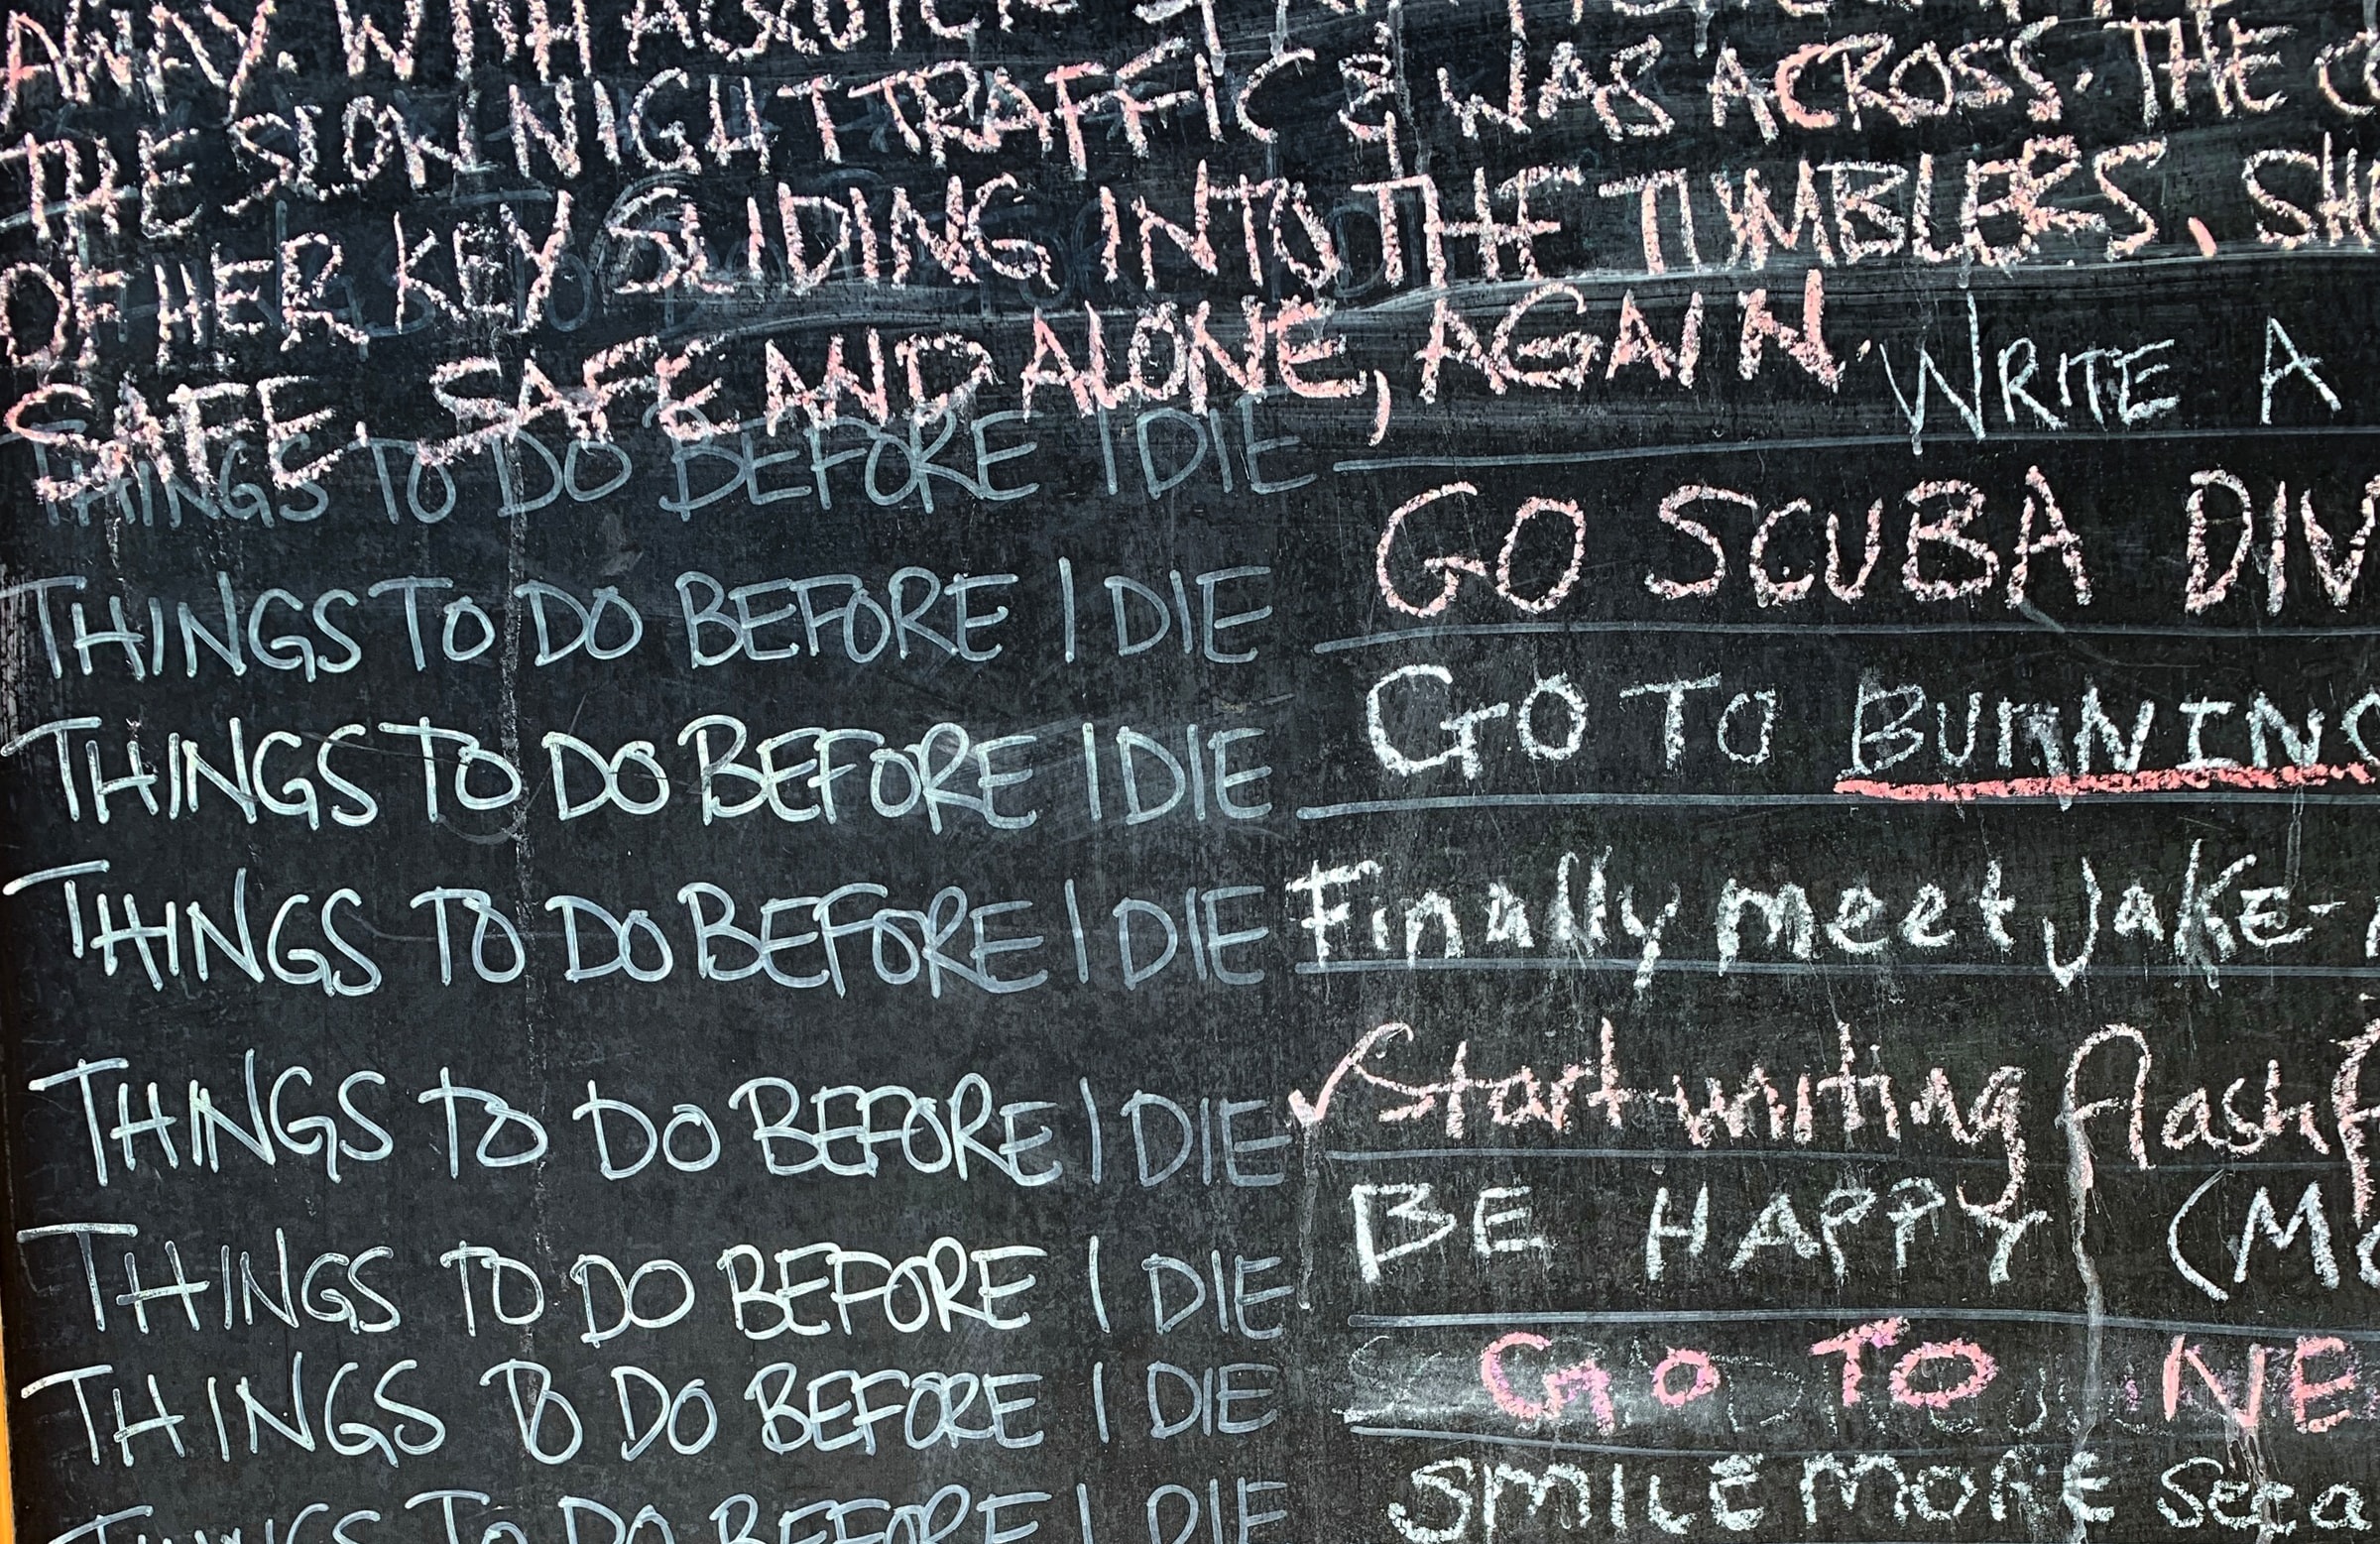 AWAY. WITH A QUICK
THE SLOW NIGHT TRAFFIC & WAS ACROSS. THE
OF HER KEY SLIDING INTO THE TUMBLERS,
SAFE. SAFE AND ALONE, AGAIN.
THINGS TO DO BEFORE I DIE WRITE A
THINGS TO DO BEFORE I DIE GO SCUBA DIV
THINGS TO DO BEFORE I DIE GO TO BURNING
THINGS TO DO BEFORE I DIE Finally meet Jake-
THINGS TO DO BEFORE I DIE Start writing flash
THINGS TO DO BEFORE I DIE BE HAPPY (M
THINGS TO DO BEFORE I DIE GO TO NE
THINGS TO DO BEFORE I DIE SMILE MORE